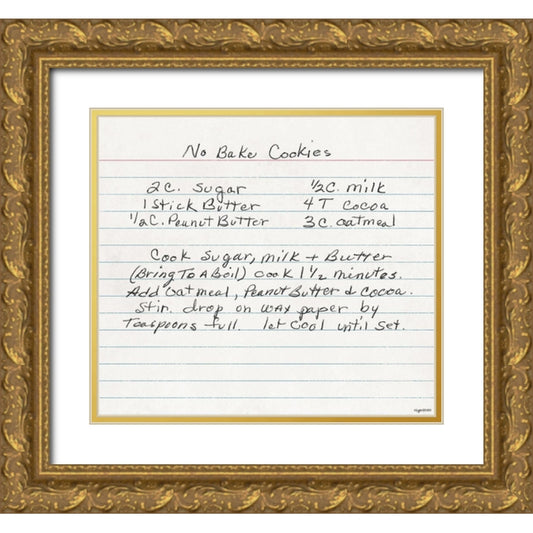 No Bake Cookies
2 C. Sugar ½ C. milk
1 Stick Butter 4 T cocoa
½ C. Peanut Butter 3 C. oatmeal
Cook Sugar, milk + Butter
(Bring To A Boil) cook 1½ minutes.
Add oatmeal, Peanut Butter & cocoa.
Stir. drop on wax paper by
Teaspoons full. let cool until set.